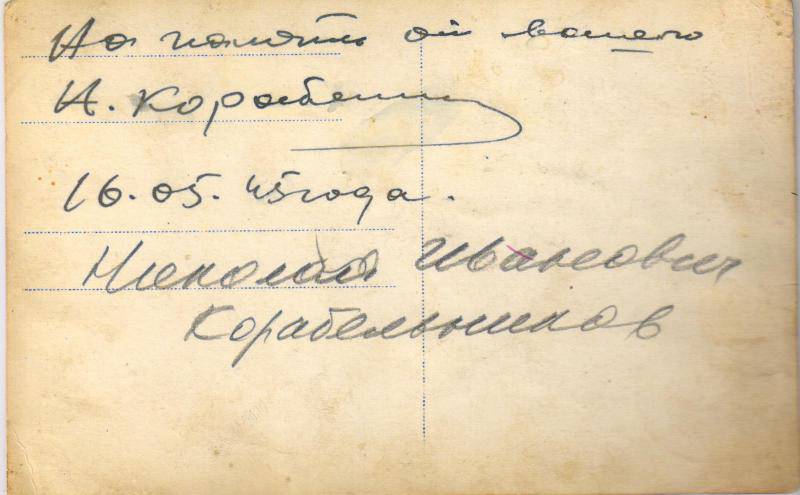 На память от вашего
Н. Корабельник
16.05.45 года.
Николай Иванович
Корабельников